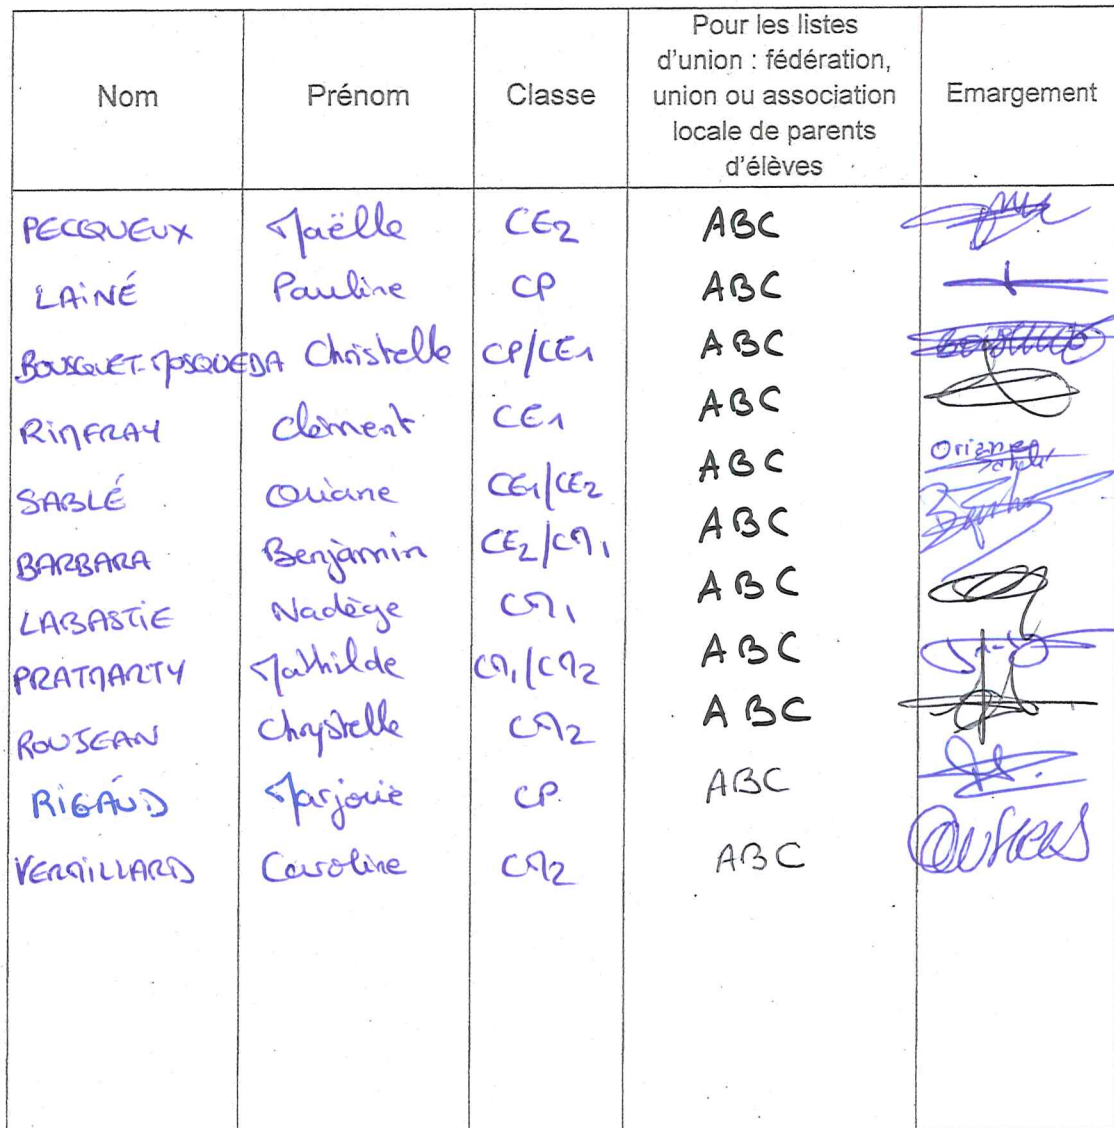 Nom Prénom Classe Pour les listes d'union : fédération, union ou association locale de parents d'élèves Emargement
PECQUEUX Maëlle CE2 ABC
LAINÉ Pauline CP ABC
BOUSQUET-MOSQUEDA Christelle CP/CE1 ABC
RINFRAY Clément CE1 ABC
SABLÉ Oriane CE1/CE2 ABC Oriane Sablé
BARBARA Benjamin CE2/CM1 ABC
LABASTIE Nadège CM1 ABC
PRATMARTY Mathilde CM1/CM2 ABC
ROUJEAN Chrystelle CM2 ABC
RIGAUD Marjorie CP ABC
VERMILLARD Caroline CM2 ABC